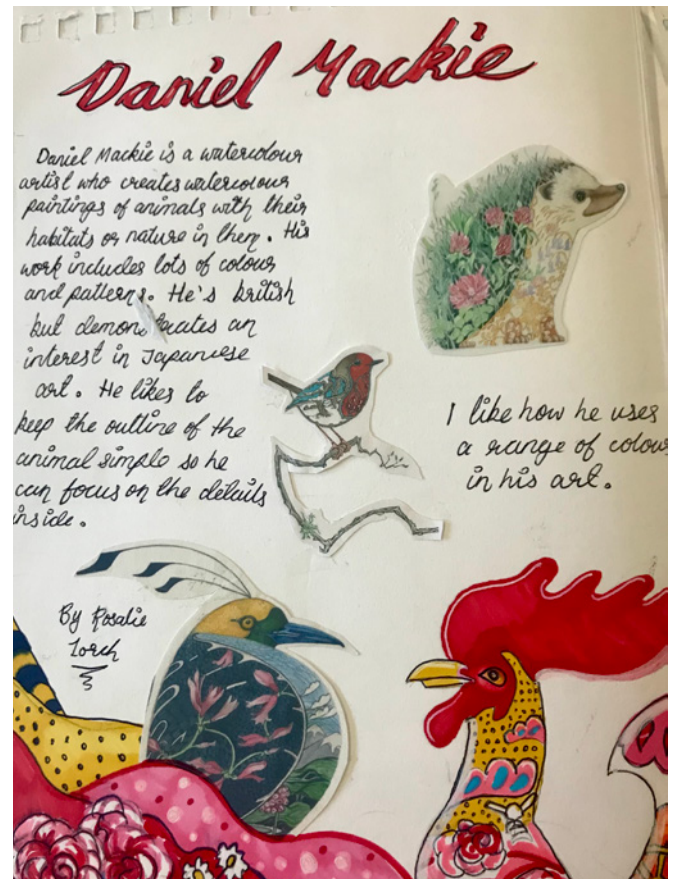 Daniel Mackie
Daniel Mackie is a watercolour
artist who creates watercolour
paintings of animals with their
habitats or nature in them. His
work includes lots of colour
and patterns. He's british
but demonstrates an
interest in Japanese
art. He likes to
keep the outline of the
animal simple so he
can focus on the details
inside.
I like how he uses
a range of colour
in his art.
By Rosalie
Lorch